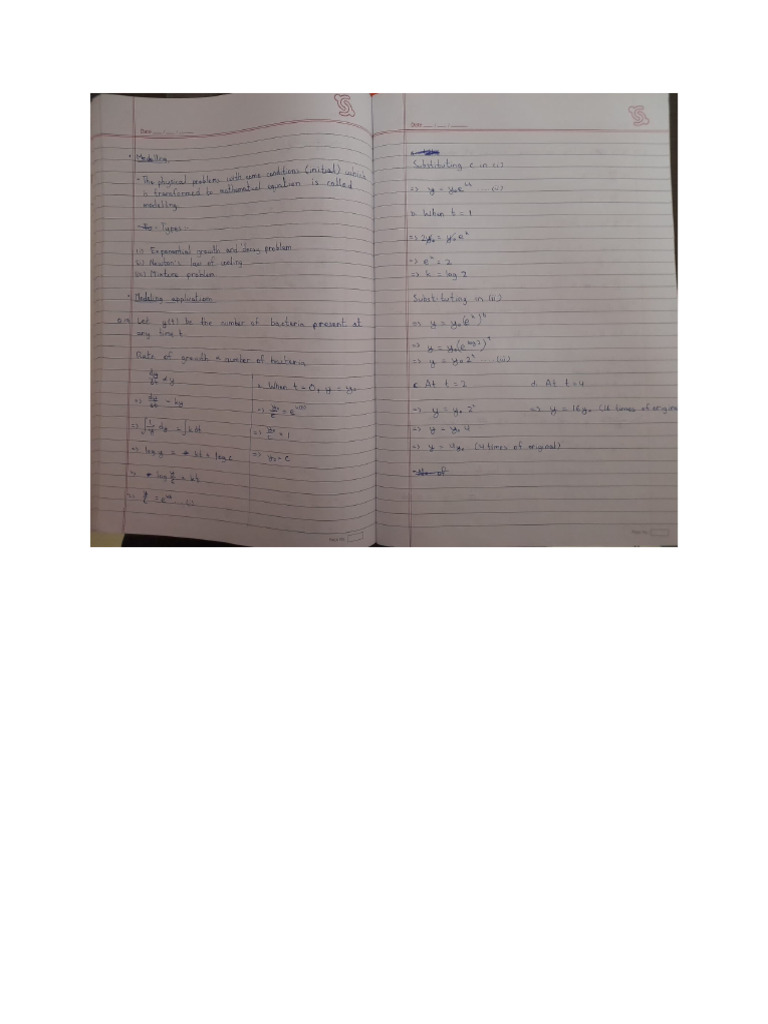 Date
• Modelling
- The physical problems with some conditions (initial) which
is transformed to mathematical equation is called
modelling.
- Types -
(i) Exponential growth and decay problem
(ii) Newton's law of cooling
(iii) Mixture problem
• Modeling application
Let y(t) be the number of bacteria present at
any time t.
Rate of growth α number of bacteria
dy/dt α y
=> dy/dt = ky
=> ∫ 1/y dy = ∫ k dt
=> log y = kt + log c
=> log y/c = kt
=> y/c = e^kt ... (i)
a. When t = 0, y = y₀
=> y₀/c = e^k(0)
=> y₀/c = 1
=> y₀ = c
Page No.
Date
Substituting c in (i)
=> y = y₀e^kt ... (ii)
b. When t = 1
=> 2y₀ = y₀e^k
=> e^k = 2
=> k = log 2
Substituting in (ii)
=> y = y₀(e^k)^t
=> y = y₀(e^log2)^t
=> y = y₀ 2^t ... (iii)
c. At t = 2
=> y = y₀ 2²
=> y = y₀ 4
=> y = 4y₀ (4 times of original)
d. At t = 4
=> y = 16y₀ (16 times of origina
Page No.